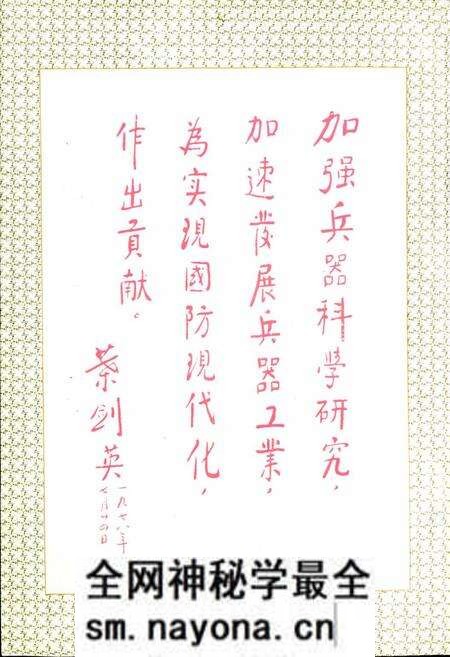 加强兵器科学研究，
加速發展兵器工業，
為实現國防現代化，
作出貢献。
葉剑英
一九七八年
七月廿四日
全网神秘学最全
sm.nayona.cn